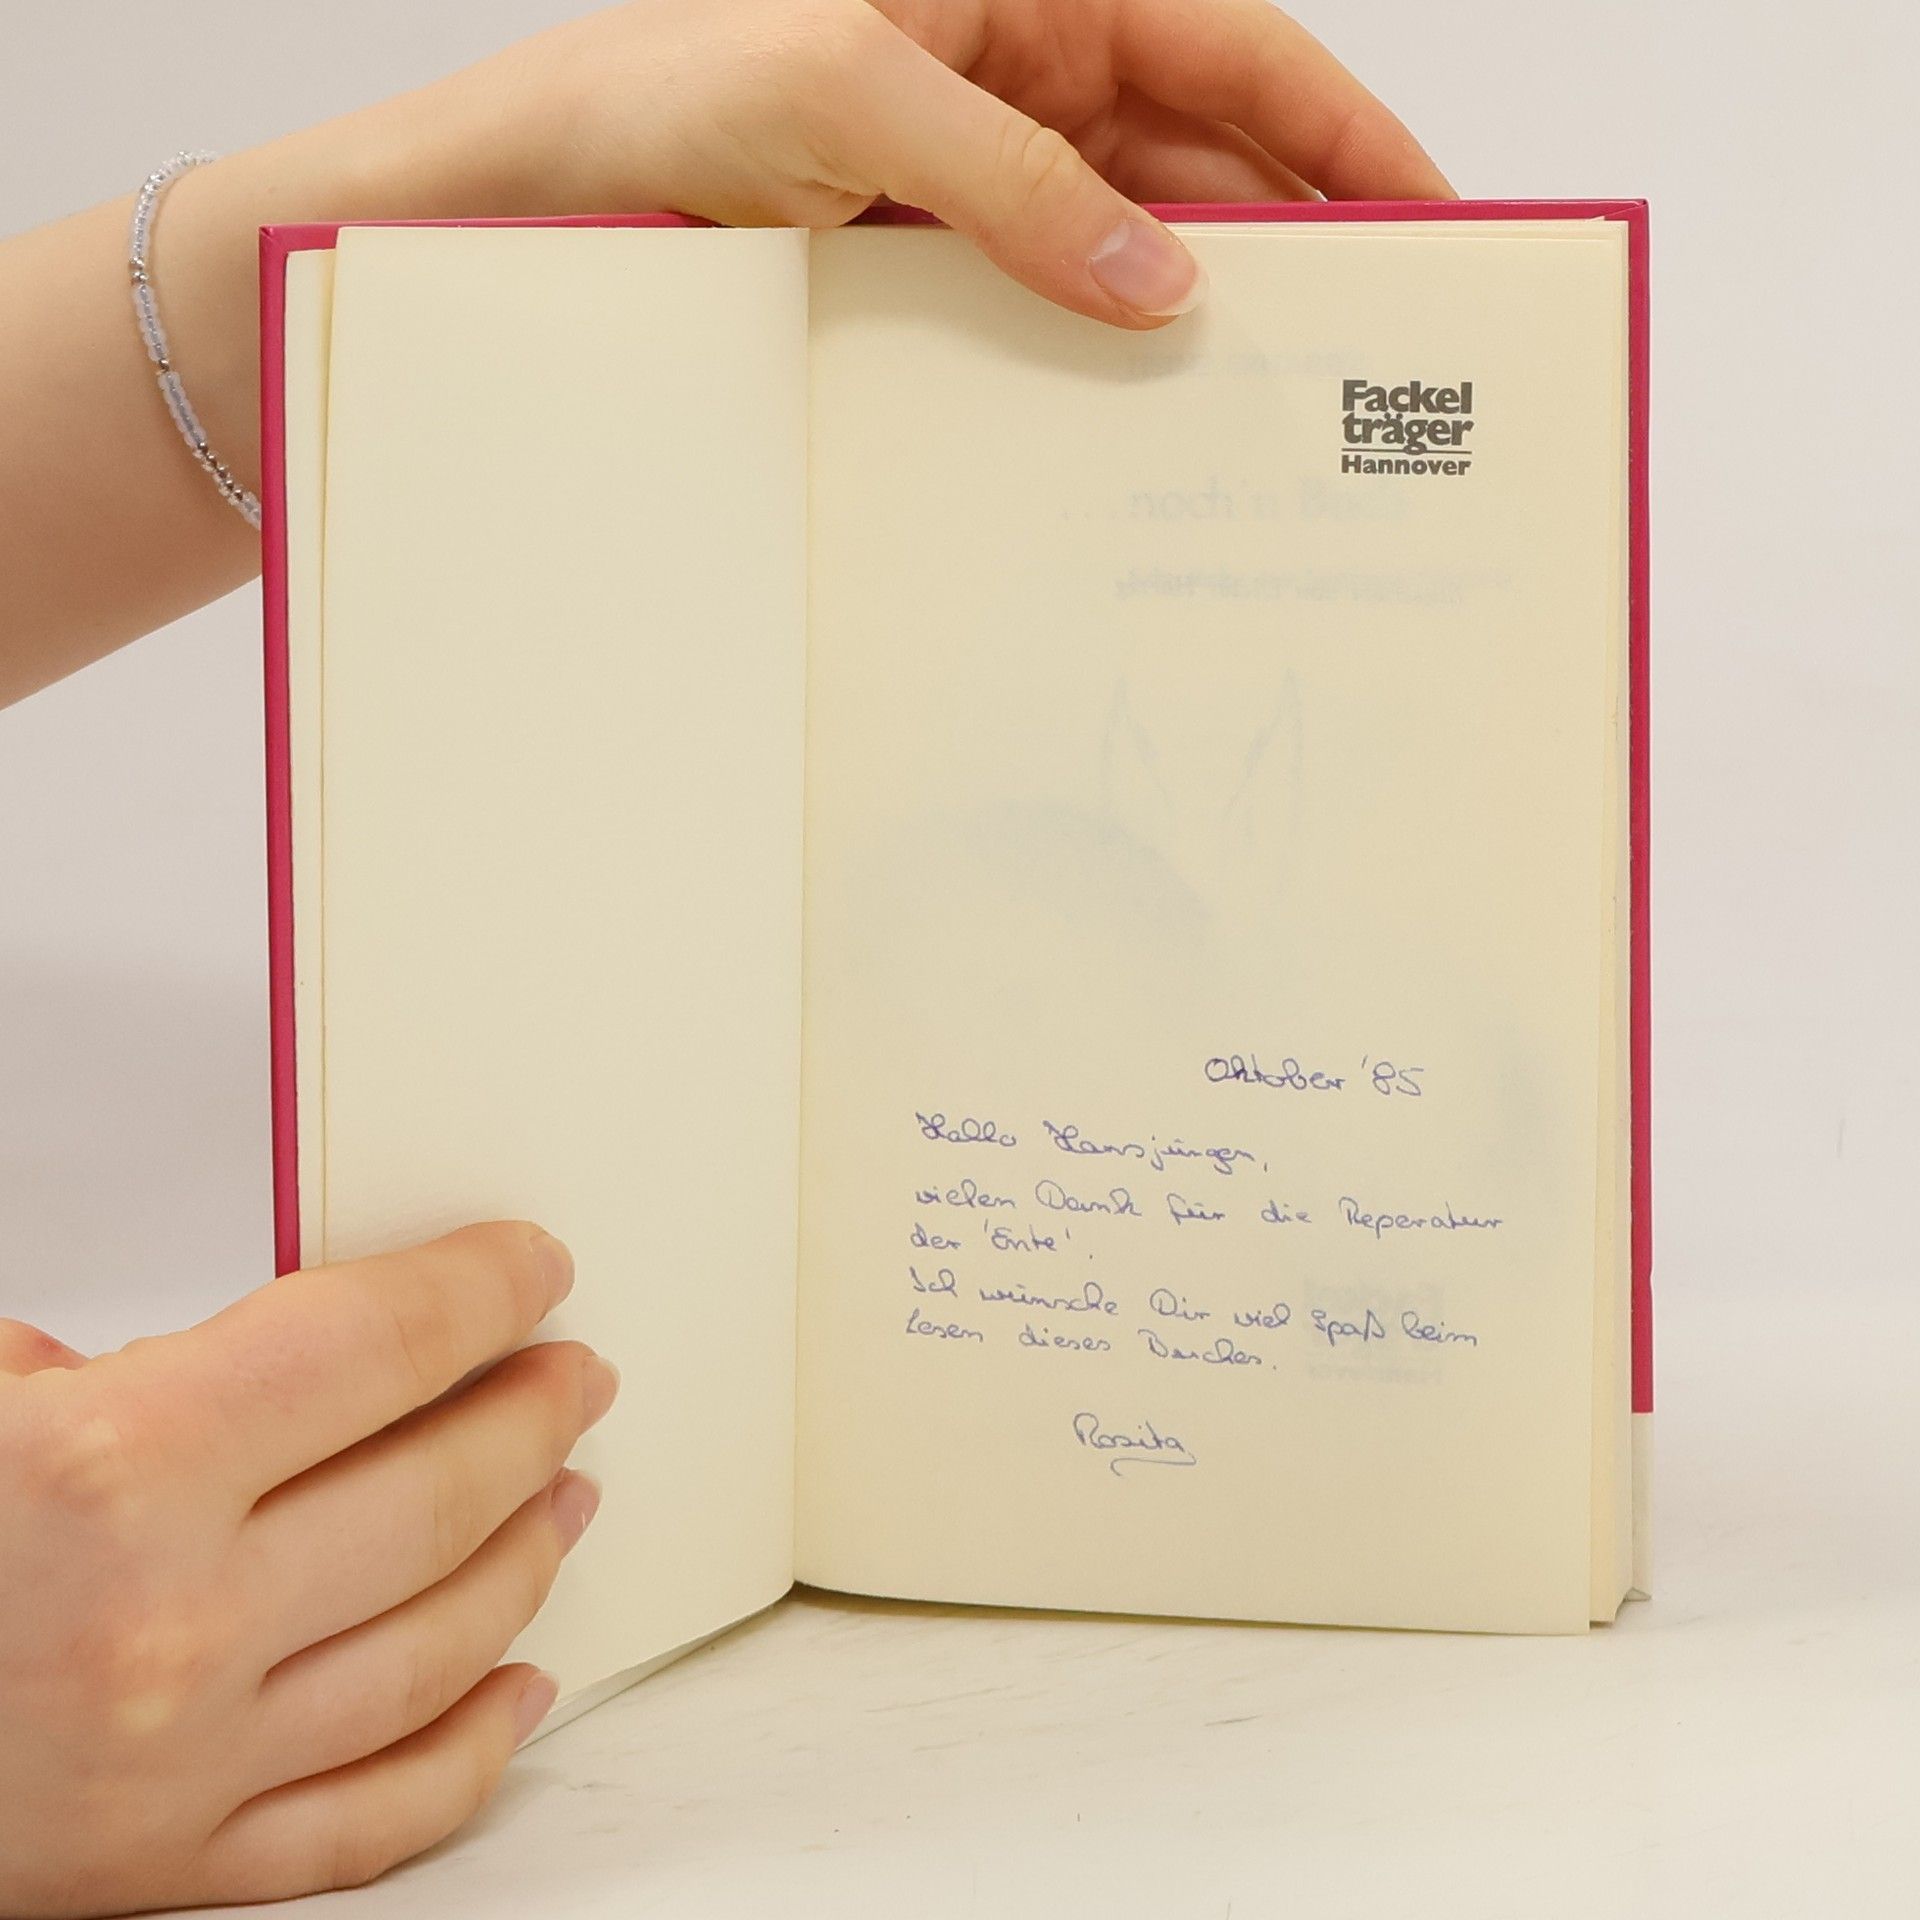 Fackel
träger
Hannover
noch'n Buch
Oktober '85
Hallo Hansjürgen,
vielen Dank für die Reperatur
der 'Ente'.
Ich wünsche Dir viel Spaß beim
Lesen dieses Buches.
Rosita